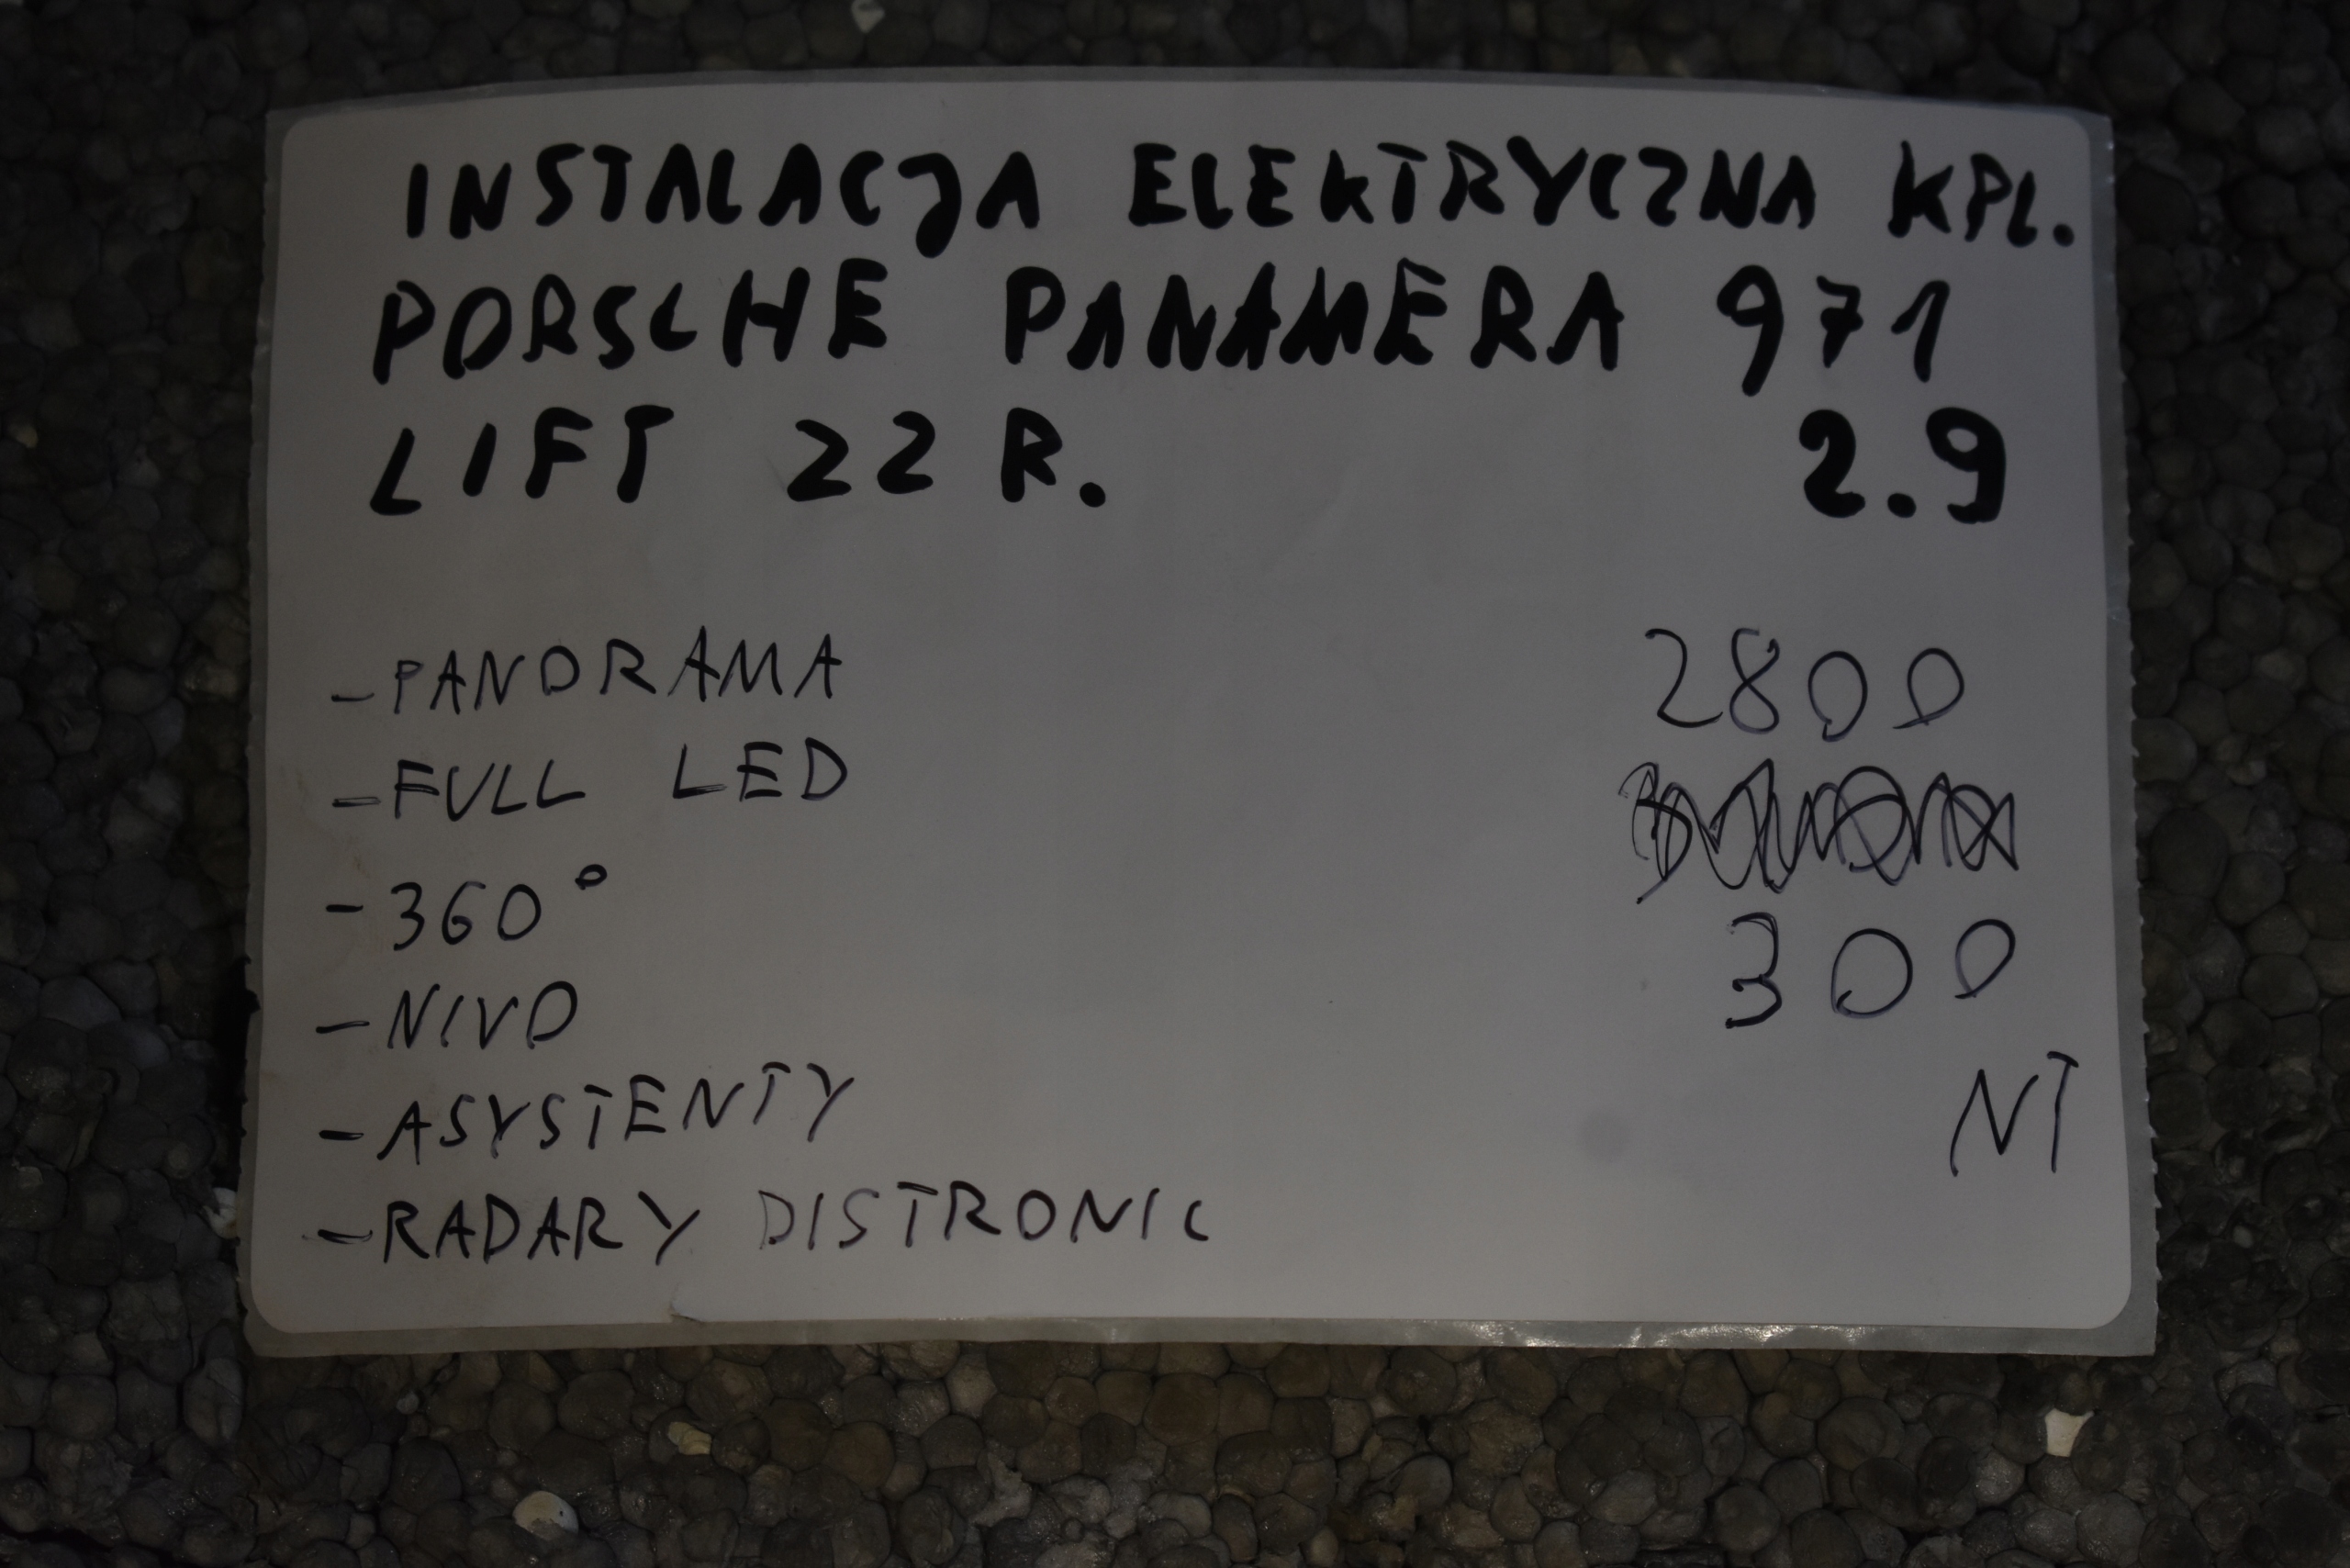 INSTALACJA ELEKTRYCZNA KPL.
PORSCHE PANAMERA 971
LIFT 22 R. 2.9
-PANORAMA
-FULL LED
-360°
-NIVO
-ASYSTENTY
-RADARY DISTRONIC
2800
300
NT